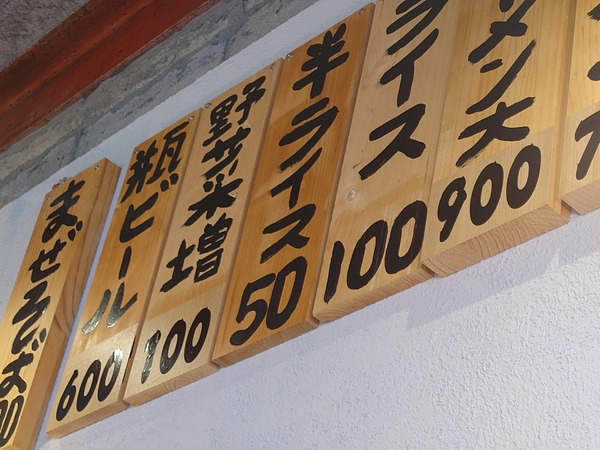 メン大
900
ライス
100
半ライス
50
野菜増
100
瓶ビール
600
まぜそば